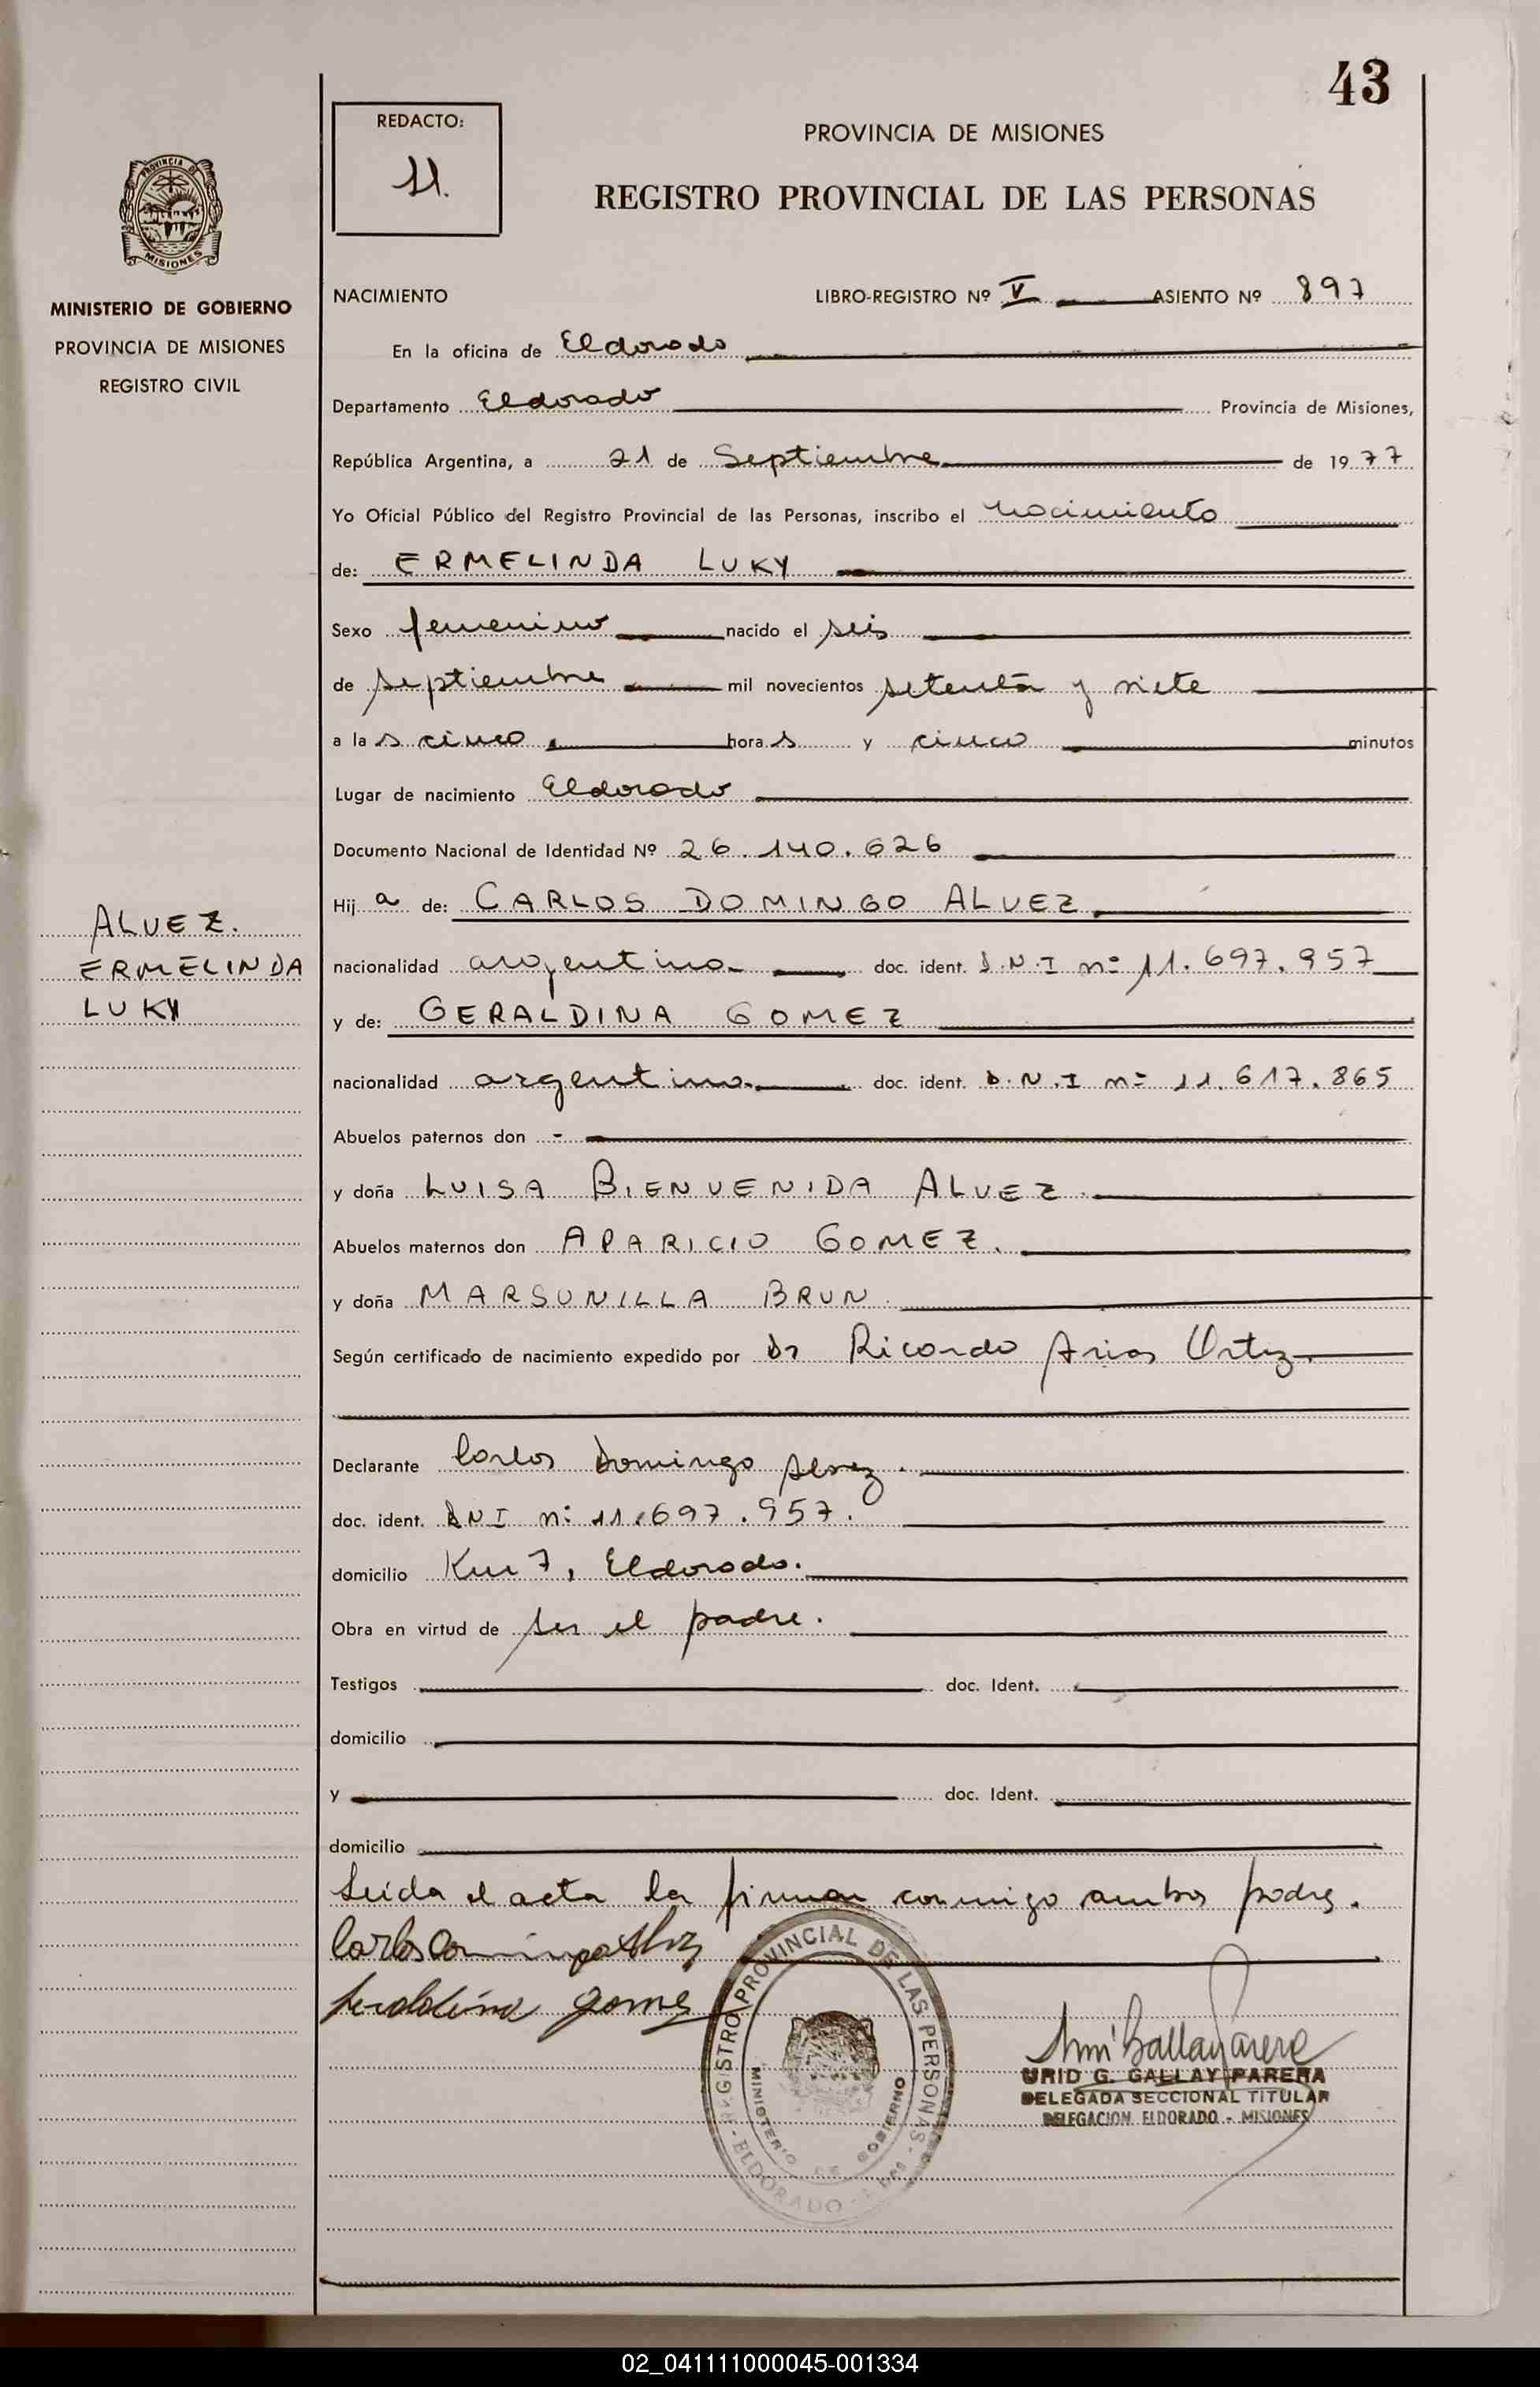 43
REDACTO:
11.
PROVINCIA DE MISIONES
REGISTRO PROVINCIAL DE LAS PERSONAS
PROVINCIA DE
MISIONES
MINISTERIO DE GOBIERNO
PROVINCIA DE MISIONES
REGISTRO CIVIL
NACIMIENTO LIBRO-REGISTRO Nº V ASIENTO Nº 897
En la oficina de Eldorado
Departamento Eldorado Provincia de Misiones,
República Argentina, a 21 de Septiembre de 1977
Yo Oficial Público del Registro Provincial de las Personas, inscribo el nacimiento
de: ERMELINDA LUKY
Sexo femenino nacido el seis
de septiembre mil novecientos setenta y siete
a las cinco horas y cinco minutos
Lugar de nacimiento Eldorado
Documento Nacional de Identidad Nº 26.140.626
Hija de: CARLOS DOMINGO ALVEZ
ALVEZ.
ERMELINDA
LUKY
nacionalidad argentina doc. ident. D.N.I nº 11.697.957
y de: GERALDINA GOMEZ
nacionalidad argentina doc. ident. D.N.I nº 11.617.865
Abuelos paternos don -
y doña LUISA BIENVENIDA ALVEZ.
Abuelos maternos don APARICIO GOMEZ.
y doña MARSUNILLA BRUN.
Según certificado de nacimiento expedido por Dr Ricardo Arias Ortiz
Declarante Carlos Domingo Alvez.
doc. ident. DNI nº 11.697.957.
domicilio Km 7, Eldorado.
Obra en virtud de ser el padre.
Testigos doc. Ident.
domicilio
y doc. Ident.
domicilio
Leida el acta la firman conmigo ambos padres.
Carlos Domingo Alvez
Geraldina Gomez
REGISTRO PROVINCIAL DE LAS PERSONAS
MINISTERIO DE GOBIERNO
ELDORADO
URID G. GALLAY PARERA
DELEGADA SECCIONAL TITULAR
DELEGACION ELDORADO - MISIONES
02_041111000045-001334